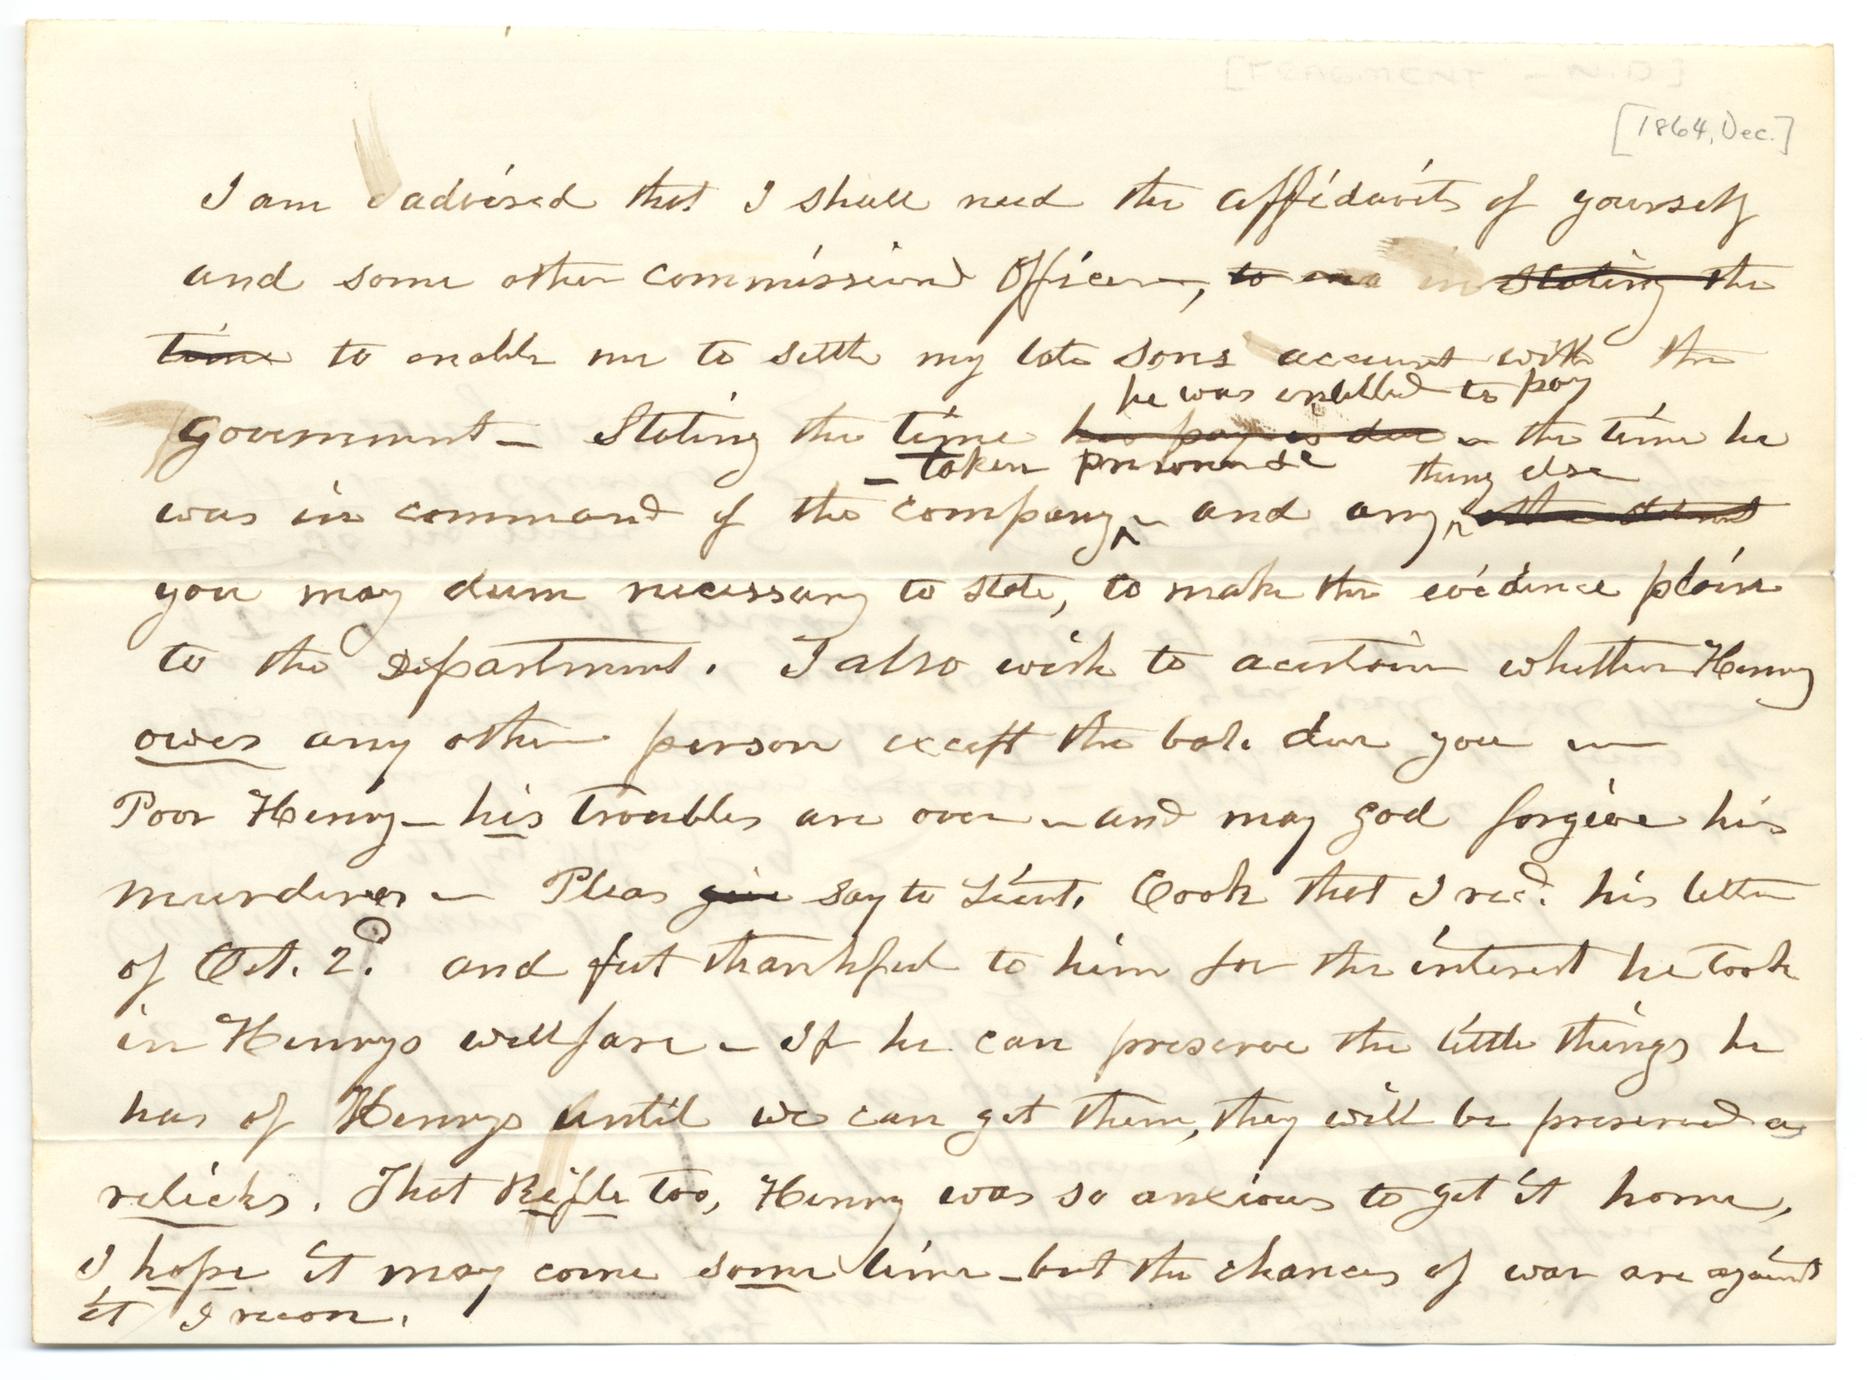 [FRAGMENT - N.D]
[1864, Dec.]
I am advised that I shall need the affidavits of yourself
and some other commissiond Officer—, to ena in stating the
time to enable me to settle my late sons account with the
he was entitled to pay
Government — Stating the time his pay is due — the time he
— taken prisoner &c thing else
was in command of the company — and any other statement
you may deem necessary to state, to make the evidence plain
to the Department. I also wish to acertain whether Henry
owes any other person except the bal. due you —
Poor Henry — his troubles are over — and may god forgive his
murderers — Pleas give say to Lieut. Cook that I recd. his letter
of Oct. 2d. and feel thankful to him for the interest he took
in Henrys wellfare — If he can preserve the little things he
has of Henrys until we can get them, they will be preserved as
relicks. That Rifle too, Henry was so anxious to get it home,
I hope it may come some time — but the chances of war are against
it I recon.